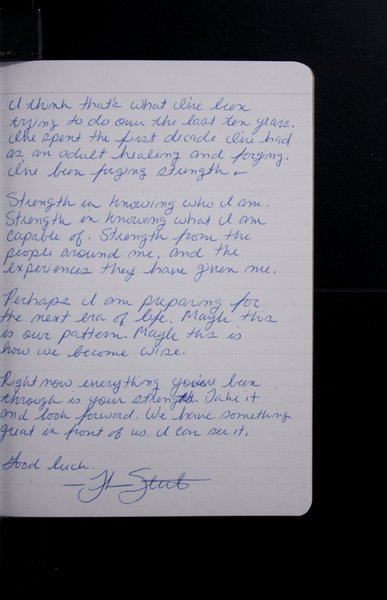 I think that's what I've been
trying to do over the last ten years.
I've spent the first decade I've had
as an adult healing and forging.
I've been forging strength –
Strength in knowing who I am.
Strength in knowing what I am
capable of. Strength from the
people around me, and the
experiences they have given me.
Perhaps I am preparing for
the next era of life. Maybe this
is our pattern. Maybe this is
how we become wise.
Right now everything you've been
through is your strength. Take it
and look forward. We have something
great in front of us. I can see it.
Good luck.